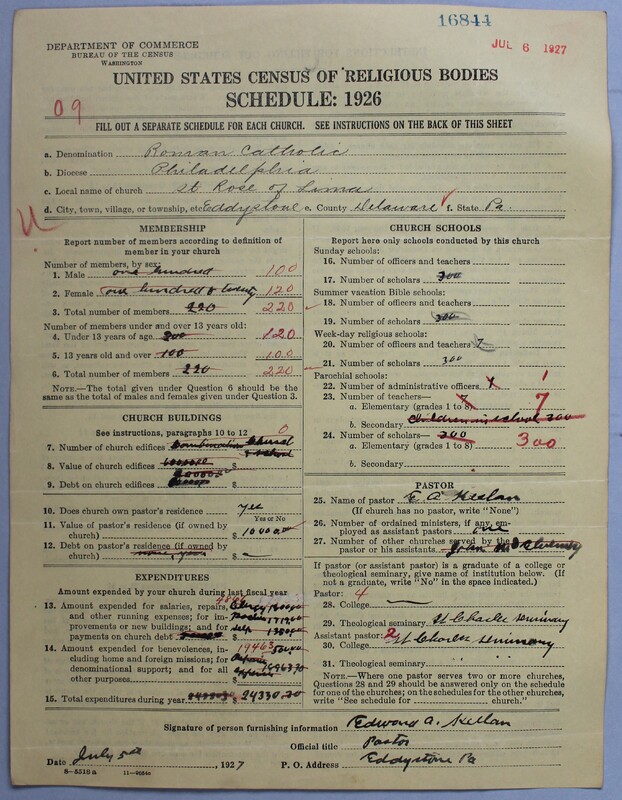 16844
JUL 6 1927
DEPARTMENT OF COMMERCE
BUREAU OF THE CENSUS
WASHINGTON
UNITED STATES CENSUS OF RELIGIOUS BODIES
SCHEDULE: 1926
09
FILL OUT A SEPARATE SCHEDULE FOR EACH CHURCH. SEE INSTRUCTIONS ON THE BACK OF THIS SHEET
a. Denomination Roman Catholic
b. Diocese Philadelphia
c. Local name of church St Rose of Lima
d. City, town, village, or township, etc Eddystone e. County Delaware f. State Pa.
MEMBERSHIP
Report number of members according to definition of
member in your church
Number of members, by sex:
1. Male one hundred 100
2. Female one hundred & twenty 120
3. Total number of members 220 220
Number of members under and over 13 years old:
4. Under 13 years of age 300 120
5. 13 years old and over 100 100
6. Total number of members 220 220
NOTE.—The total given under Question 6 should be the
same as the total of males and females given under Question 3.
CHURCH BUILDINGS
See instructions, paragraphs 10 to 12 0
7. Number of church edifices Combination Church & School
8. Value of church edifices $
9. Debt on church edifices $
10. Does church own pastor's residence yes
Yes or No
11. Value of pastor's residence (if owned by
church) $ 10000.00
12. Debt on pastor's residence (if owned by
church) $
EXPENDITURES
Amount expended by your church during last fiscal year
13. Amount expended for salaries, repairs,
and other running expenses; for im-
provements or new buildings; and for
payments on church debt $
14. Amount expended for benevolences, in- 19463
cluding home and foreign missions; for
denominational support; and for all
other purposes $
15. Total expenditures during year $ 24330.70
CHURCH SCHOOLS
Report here only schools conducted by this church
Sunday schools:
16. Number of officers and teachers
17. Number of scholars 300
Summer vacation Bible schools:
18. Number of officers and teachers
19. Number of scholars 300
Week-day religious schools:
20. Number of officers and teachers 7
21. Number of scholars 300
Parochial schools:
22. Number of administrative officers 1 1
23. Number of teachers—
a. Elementary (grades 1 to 8) 7 7
b. Secondary Children in school 300
24. Number of scholars— 300
a. Elementary (grades 1 to 8) 300
b. Secondary
PASTOR
25. Name of pastor E. A.
(If church has no pastor, write "None")
26. Number of ordained ministers, if any, em-
ployed as assistant pastors one
27. Number of other churches served by the
pastor or his assistants John
If pastor (or assistant pastor) is a graduate of a college or
theological seminary, give name of institution below. (If
not a graduate, write "No" in the space indicated.)
Pastor: 4
28. College
29. Theological seminary St Charles Seminary
Assistant pastor: 2
30. College St Charles Seminary
31. Theological seminary
NOTE.—Where one pastor serves two or more churches,
Questions 28 and 29 should be answered only on the schedule
for one of the churches; on the schedules for the other churches,
write "See schedule for church."
Signature of person furnishing information Edward A.
Official title Pastor
Date July 5th, 1927 P. O. Address Eddystone Pa
8-5518a 11-9084a